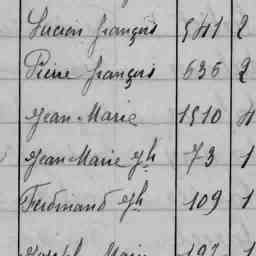 Lucien françois 541 2
Pierre françois 636 2
Jean Marie 1510 4
Jean Marie Jh 73 1
Ferdinand Jh 109 1
Joseph Marie 197 1